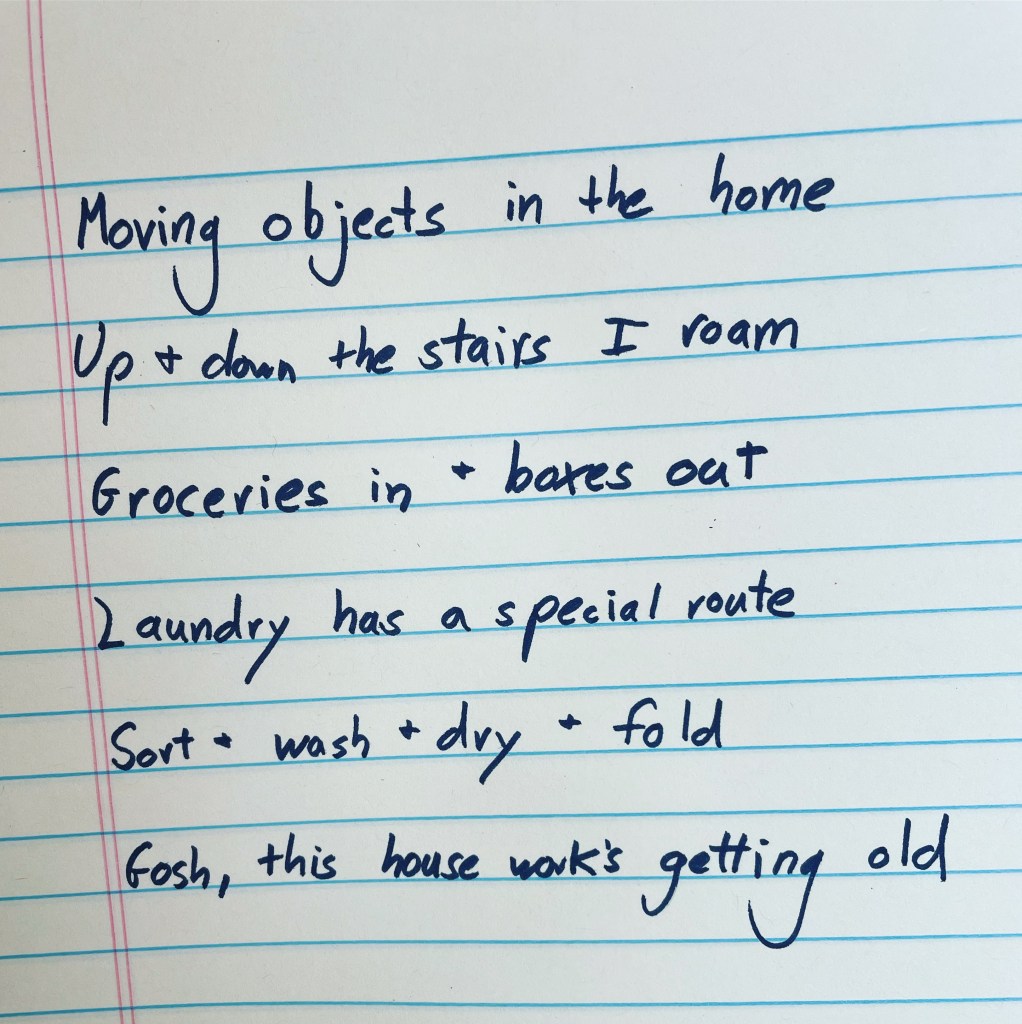 Moving objects in the home
Up + down the stairs I roam
Groceries in + boxes out
Laundry has a special route
Sort + wash + dry + fold
Gosh, this house work's getting old